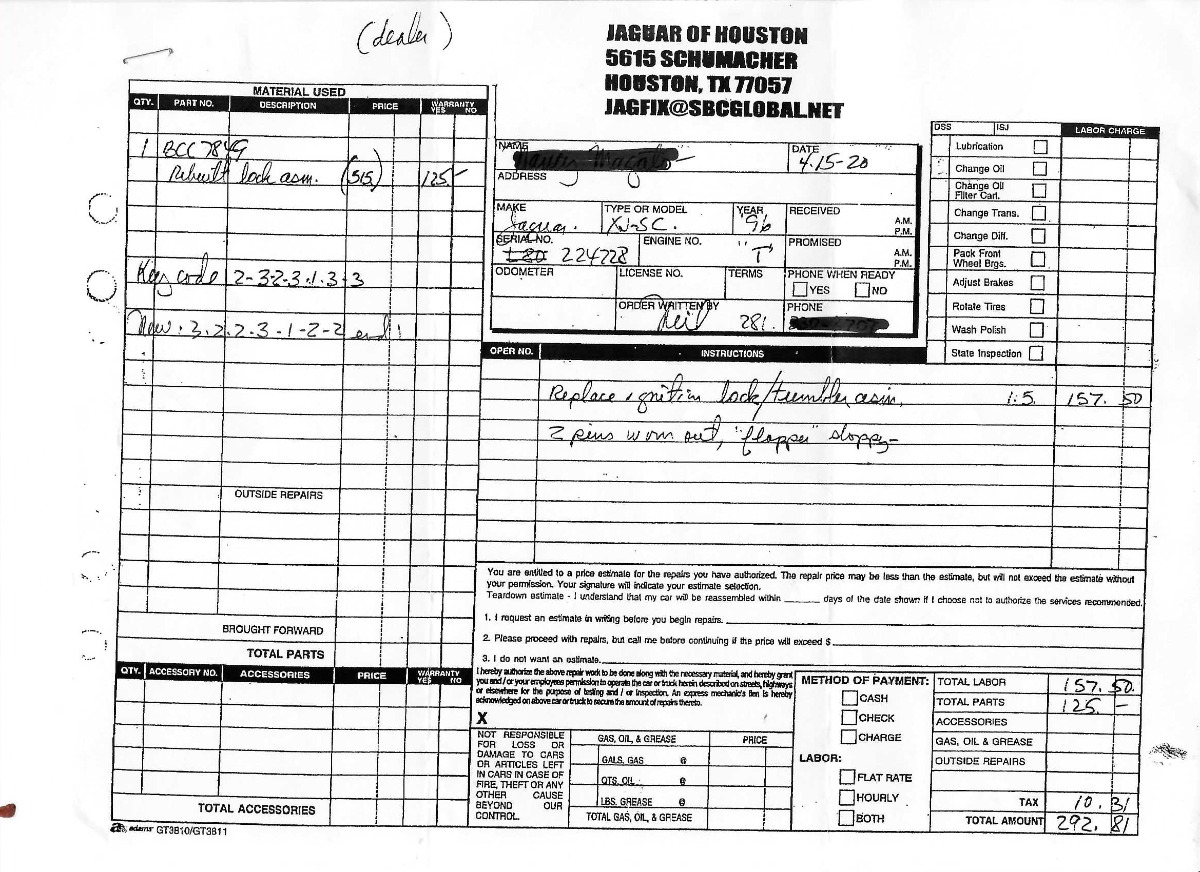 (dealer)
JAGUAR OF HOUSTON
5615 SCHUMACHER
HOUSTON, TX 77057
JAGFIX@SBCGLOBAL.NET
MATERIAL USED
QTY. PART NO. DESCRIPTION PRICE WARRANTY YES NO
1 BCC7849
Rebuilt lock asm. (515) 125.-
Key code 2-3-2-3-1-3-3
New: 3-2-2-3-1-2-2 end!
OUTSIDE REPAIRS
BROUGHT FORWARD
TOTAL PARTS
QTY. ACCESSORY NO. ACCESSORIES PRICE WARRANTY YES NO
TOTAL ACCESSORIES
adams GT3810/GT3811
NAME
DATE
4.15-20
ADDRESS
MAKE TYPE OR MODEL YEAR RECEIVED A.M.
Jaguar. XJ-SC. '96 P.M.
SERIAL NO. ENGINE NO. PROMISED A.M.
224728 "T" P.M.
ODOMETER LICENSE NO. TERMS PHONE WHEN READY
YES NO
ORDER WRITTEN BY PHONE
Neil 281.
DSS ISJ LABOR CHARGE
Lubrication
Change Oil
Change Oil
Filter Cart.
Change Trans.
Change Diff.
Pack Front
Wheel Brgs.
Adjust Brakes
Rotate Tires
Wash Polish
State Inspection
OPER NO. INSTRUCTIONS
Replace ignition lock/tumbler asm. 1.5. 157. 50
2 pins worn out, "flapper" sloppy-
You are entitled to a price estimate for the repairs you have authorized. The repair price may be less than the estimate, but will not exceed the estimate without
your permission. Your signature will indicate your estimate selection.
Teardown estimate - I understand that my car will be reassembled within ______ days of the date shown if I choose not to authorize the services recommended.
1. I request an estimate in writing before you begin repairs.
2. Please proceed with repairs, but call me before continuing if the price will exceed $
3. I do not want an estimate.
I hereby authorize the above repair work to be done along with the necessary material, and hereby grant
you and / or your employees permission to operate the car or truck herein described on streets, highways
or elsewhere for the purpose of testing and / or inspection. An express mechanic's lien is hereby
acknowledged on above car or truck to secure the amount of repairs thereto.
X
NOT RESPONSIBLE
FOR LOSS OR
DAMAGE TO CARS
OR ARTICLES LEFT
IN CARS IN CASE OF
FIRE, THEFT OR ANY
OTHER CAUSE
BEYOND OUR
CONTROL.
GAS, OIL, & GREASE PRICE
GALS, GAS @
QTS. OIL @
LBS. GREASE @
TOTAL GAS, OIL, & GREASE
METHOD OF PAYMENT:
CASH
CHECK
CHARGE
LABOR:
FLAT RATE
HOURLY
BOTH
TOTAL LABOR 157. 50.
TOTAL PARTS 125. -
ACCESSORIES
GAS, OIL & GREASE
OUTSIDE REPAIRS
TAX 10. 31
TOTAL AMOUNT 292. 81